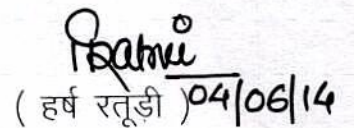 ( हर्ष रतूड़ी ) 04/06/14